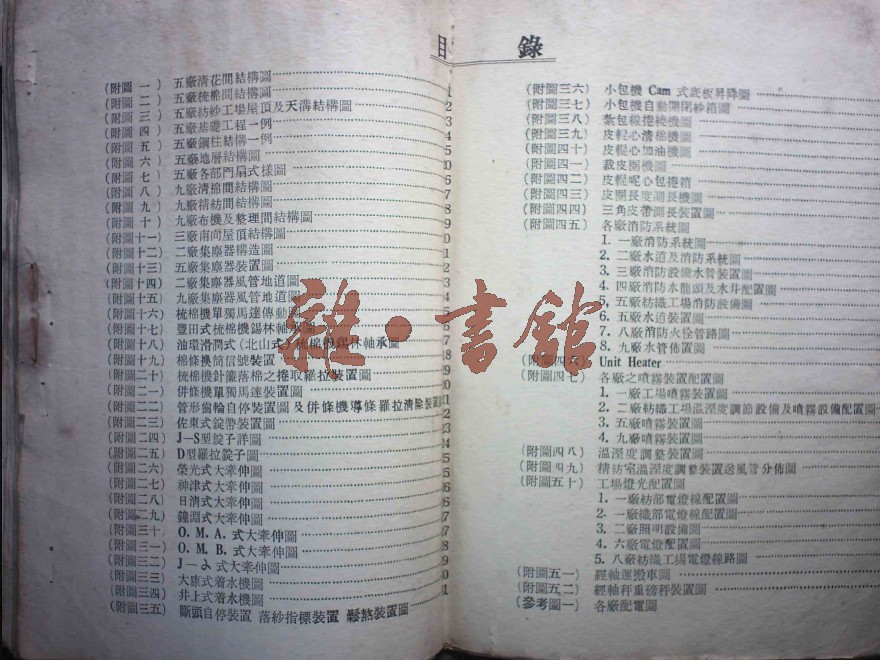 目錄
(附圖一) 五廠淸花間結構圖 1
(附圖二) 五廠梳棉間結構圖 2
(附圖三) 五廠紡紗工場屋頂及天溝結構圖 3
(附圖四) 五廠基礎工程一例 4
(附圖五) 五廠鋼柱結構一例 5
(附圖六) 五廠地層結構圖
(附圖七) 五廠各部門扇式樣圖 6
(附圖八) 九廠淸棉間結構圖 7
(附圖九) 九廠精紡間結構圖 8
(附圖十) 九廠布機及整理間結構圖 9
(附圖十一) 三廠南向屋頂結構圖
(附圖十二) 二廠集塵器構造圖
(附圖十三) 五廠集塵器裝置圖
(附圖十四) 二廠集塵器風管地道圖
(附圖十五) 九廠集塵器風管地道圖
(附圖十六) 梳棉機單獨馬達傳動圖
(附圖十七) 豐田式梳棉機錫林軸承圖
(附圖十八) 油環滑潤式(北山式)梳棉機錫林軸承圖
(附圖十九) 棉條換筒信號裝置
(附圖二十) 梳棉機針簾落棉之捲取羅拉裝置圖
(附圖二一) 併條機單獨馬達裝置圖
(附圖二二) 管形齒輪自停裝置圖及併條機導條羅拉淸除裝置
(附圖二三) 佐東式錠帶裝置圖
(附圖二四) J—S型錠子詳圖
(附圖二五) D型羅拉錠子圖
(附圖二六) 榮光式大牽伸圖
(附圖二七) 神津式大牽伸圖
(附圖二八) 日淸式大牽伸圖
(附圖二九) 鐘淵式大牽伸圖
(附圖三十) O. M. A. 式大牽伸圖
(附圖三一) O. M. B. 式大牽伸圖
(附圖三二) J—み式大牽伸圖
(附圖三三) 大康式着水機圖
(附圖三四) 井上式着水機圖
(附圖三五) 斷頭自停裝置 落紗指標裝置 鬆熬裝置圖
(附圖三六) 小包機 Cam 式底板昇降圖
(附圖三七) 小包機自動開閉紗箱圖
(附圖三八) 紮包線捲繞機圖
(附圖三九) 皮輥心淸棉機圖
(附圖四十) 皮輥心加油機圖
(附圖四一) 裁皮圈機圖
(附圖四二) 皮輥呢心包捲箱
(附圖四三) 皮圈長度測長機圖
(附圖四四) 三角皮帶測長裝置圖
(附圖四五) 各廠消防系統圖
1. 一廠消防系統圖
2. 二廠水道及消防系統圖
3. 三廠消防設備水管裝置圖
4. 四廠消防水龍頭及水井配置圖
5. 五廠紡織工場消防設備圖
6. 五廠水道裝置圖
7. 八廠消防火佺管路圖
8. 九廠水管佈置圖
(附圖四六) Unit Heater
(附圖四七) 各廠之噴霧裝置配置圖
1. 一廠工場噴霧裝置圖
2. 二廠紡織工場溫溼度調節設備及噴霧設備配置圖
3. 五廠噴霧裝置圖
4. 九廠噴霧裝置圖
(附圖四八) 溫溼度調整裝置圖
(附圖四九) 精紡室溫溼度調整裝置送風管分佈圖
(附圖五十) 工場燈光配置圖
1. 一廠紡部電燈線配置圖
2. 一廠織部電燈線配置圖
3. 二廠照明設備圖
4. 六廠電燈配置圖
5. 八廠紡織工場電燈線路圖
(附圖五一) 經軸運搬車圖
(附圖五二) 經軸秤重磅秤裝置圖
(參考圖一) 各廠配電圖
雜·書館